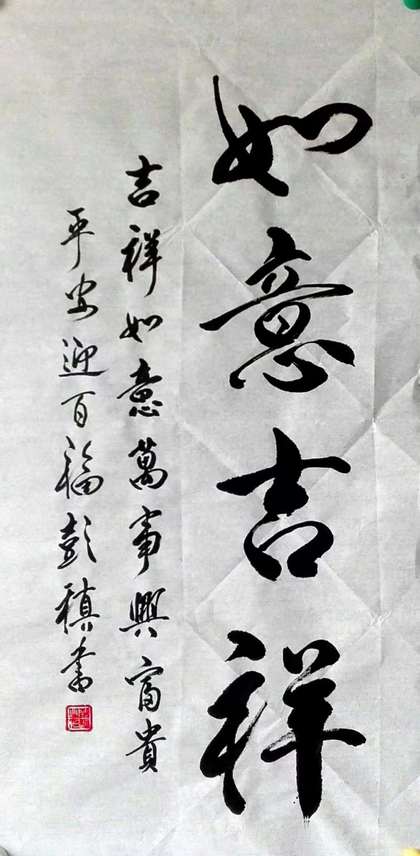 如意吉祥
吉祥如意萬事興富貴
平安迎百福彭稹書